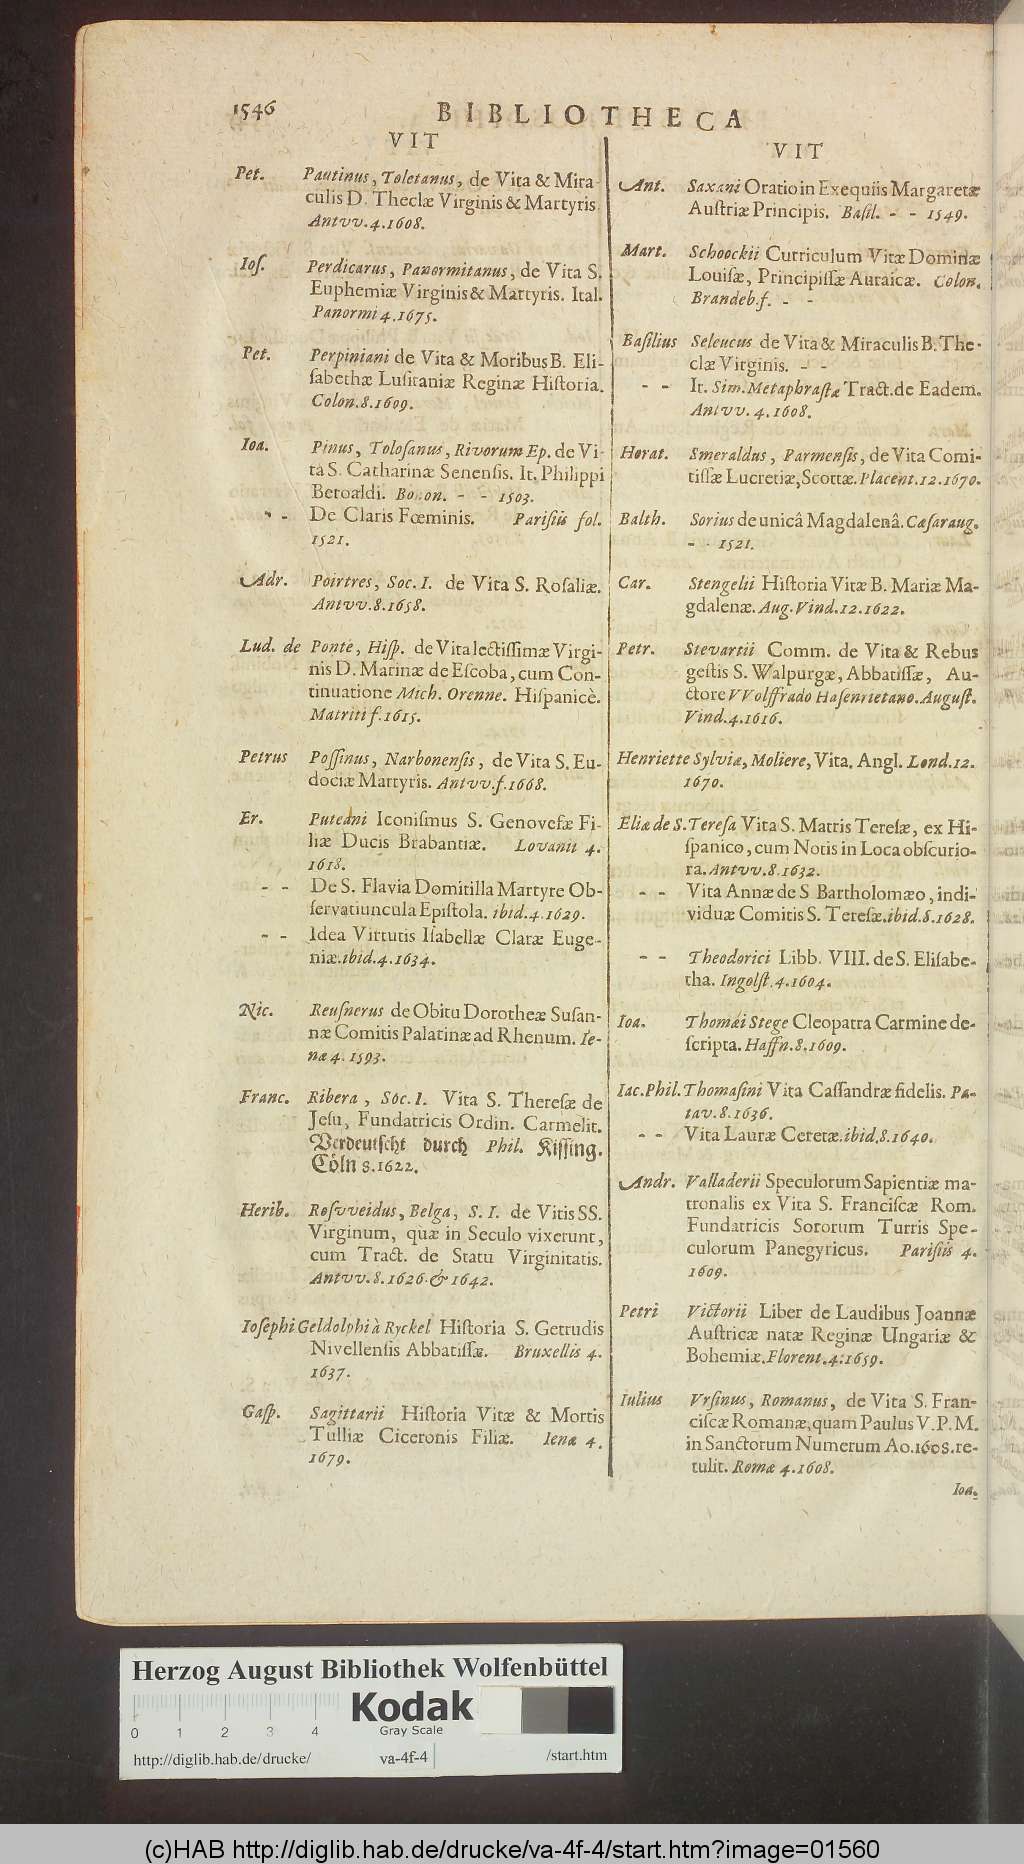 1546
BIBLIOTHECA
VIT
Pet. Pantinus, Toletanus, de Vita & Mira-
culis D. Theclæ Virginis & Martyris.
Antvv. 4. 1608.
Ios. Perdicarus, Panormitanus, de Vita S.
Euphemiæ Virginis & Martyris. Ital.
Panormi 4. 1675.
Pet. Perpiniani de Vita & Moribus B. Eli-
sabethæ Lusitaniæ Reginæ Historia.
Colon. 8. 1609.
Ioa. Pinus, Tolosanus, Rivorum Ep. de Vi-
ta S. Catharinæ Senensis. It. Philippi
Beroaldi. Bonon. - - 1503.
- - De Claris Fœminis. Parisiis fol.
1521.
Adr. Poirtres, Soc. I. de Vita S. Rosaliæ.
Antvv. 8. 1658.
Lud. de Ponte, Hisp. de Vita lectissimæ Virgi-
nis D. Marinæ de Escoba, cum Con-
tinuatione Mich. Orenne. Hispanicè.
Matriti f. 1615.
Petrus Possinus, Narbonensis, de Vita S. Eu-
dociæ Martyris. Antvv. f. 1668.
Er. Puteani Iconismus S. Genovefæ Fi-
liæ Ducis Brabantiæ. Lovanii 4.
1618.
- - De S. Flavia Domitilla Martyre Ob-
servatiuncula Epistola. ibid. 4. 1629.
- - Idea Virtutis Isabellæ Claræ Euge-
niæ. ibid. 4. 1634.
Nic. Reusnerus de Obitu Dorotheæ Susan-
næ Comitis Palatinæ ad Rhenum. Ie-
næ 4. 1593.
Franc. Ribera, Soc. I. Vita S. Theresæ de
Jesu, Fundatricis Ordin. Carmelit.
Verdeutscht durch Phil. Kissing.
Cöln 8. 1622.
Herib. Rosvveidus, Belga, S. I. de Vitis SS.
Virginum, quæ in Seculo vixerunt,
cum Tract. de Statu Virginitatis.
Antvv. 8. 1626. & 1642.
Iosephi Geldolphi à Ryckel Historia S. Getrudis
Nivellensis Abbatissæ. Bruxellis 4.
1637.
Gasp. Sagittarii Historia Vitæ & Mortis
Tulliæ Ciceronis Filiæ. Ienæ 4.
1679.
VIT
Ant. Saxani Oratio in Exequiis Margaretæ
Austriæ Principis. Basil. - - 1549.
Mart. Schoockii Curriculum Vitæ Dominæ
Louisæ, Principissæ Auraicæ. Colon.
Brandeb. f. - -
Basilius Seleucus de Vita & Miraculis B. The-
clæ Virginis. - -
- - It. Sim. Metaphrastæ Tract. de Eadem.
Antvv. 4. 1608.
Horat. Smeraldus, Parmensis, de Vita Comi-
tissæ Lucretiæ, Scottæ. Placent. 12. 1670.
Balth. Sorius de unicâ Magdalenâ. Cæsaraug.
- - 1521.
Car. Stengelii Historia Vitæ B. Mariæ Ma-
gdalenæ. Aug. Vind. 12. 1622.
Petr. Stevartii Comm. de Vita & Rebus
gestis S. Walpurgæ, Abbatissæ, Au-
ctore VVolffrado Hasenrietano. August.
Vind. 4. 1616.
Henriette Sylviæ, Moliere, Vita. Angl. Lond. 12.
1670.
Eliæ de S. Teresa Vita S. Matris Teresæ, ex Hi-
spanico, cum Notis in Loca obscurio-
ra. Antvv. 8. 1632.
- - Vita Annæ de S Bartholomæo, indi-
viduæ Comitis S. Teresæ. ibid. 8. 1628.
- - Theodorici Libb. VIII. de S. Elisabe-
tha. Ingolst. 4. 1604.
Ioa. Thomæi Stege Cleopatra Carmine de-
scripta. Haffn. 8. 1609.
Iac. Phil. Thomasini Vita Cassandræ fidelis. Pa-
tav. 8. 1636.
- - Vita Lauræ Ceretæ. ibid. 8. 1640.
Andr. Valladerii Speculorum Sapientiæ ma-
tronalis ex Vita S. Franciscæ Rom.
Fundatricis Sororum Turris Spe-
culorum Panegyricus. Parisiis 4.
1609.
Petri Victorii Liber de Laudibus Joannæ
Austricæ natæ Reginæ Ungariæ &
Bohemiæ. Florent. 4. 1659.
Iulius Vrsinus, Romanus, de Vita S. Fran-
ciscæ Romanæ, quam Paulus V. P. M.
in Sanctorum Numerum Ao. 1608. re-
tulit. Romæ 4. 1608.
Ioa.
Herzog August Bibliothek Wolfenbüttel
Kodak
Gray Scale
0 1 2 3 4
http://diglib.hab.de/drucke/ va-4f-4 /start.htm
(c)HAB http://diglib.hab.de/drucke/va-4f-4/start.htm?image=01560